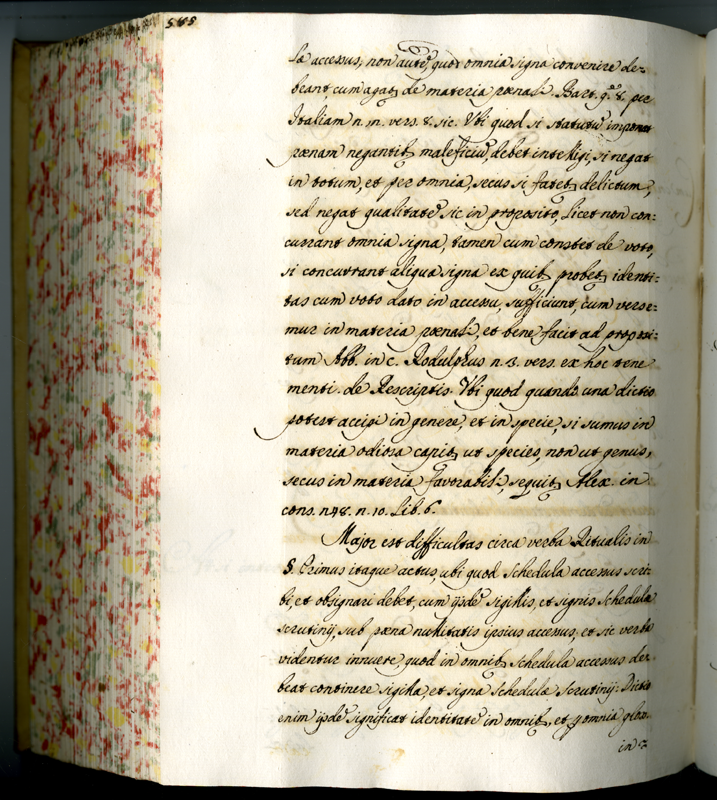 585
la accessus, non aute quod omnia signa convenire de=
beant, cum agat de materia poenali. Bart. q. 8. per
Italiam n. m. vers. 8. sic. Ubi quod si statutu imponat
poenam negantib maleficiu, debet intelligi, si negat
in totum, et per omnia, secus si fatet delictum,
sed negat qualitate sic in proposito, licet non con=
currant omnia signa, tamen cum constet de voto,
si concurrant aliqua signa ex quib probet identi=
tas cum voto dato in accessu, sufficiunt, cum verse=
mur in materia poenali, et bene facit ad proposi=
tum Abb. in c. Rodulphus n. 3. vers. ex hoc tene
menti. de Rescriptis. Ubi quod quando una dictio
potest accipi in genere, et in specie, si sumus in
materia odiosa capit ut species, non ut genus,
secus in materia favorabili, sequit Alex. in
cons. n. 48. n. 10. Lib. 6.
Major est difficultas circa verba Ritualis in
§. Primus itaque actus, ubi quod schedula accessus scri=
bi, et obsignari debet, cum ijsde sigillis, et signis schedula
scrutinij, sub poena nullitatis ipsius accessus, et sic verba
videntur innuere, quod in omnib schedula accessus de=
beat continere sigilla, et signa schedula scrutinij: Dictio
enim ijsde significat identitate in omnib, et p omnia glos.
in